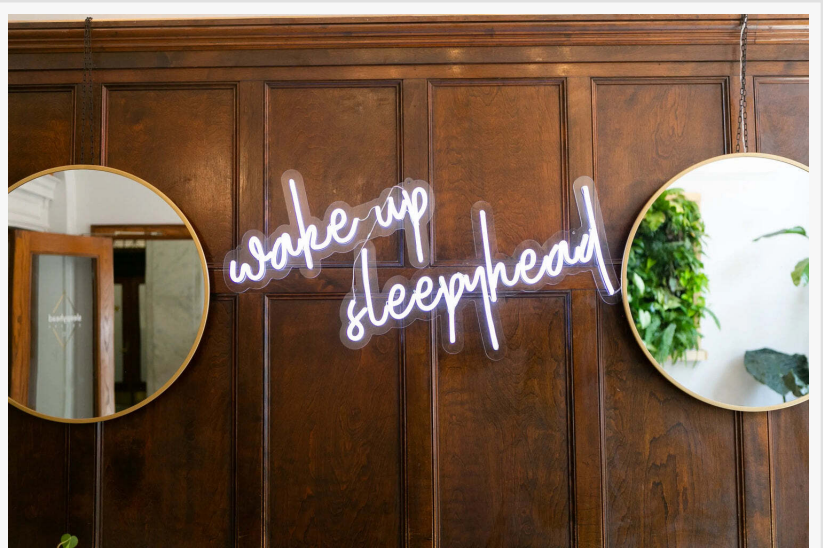 wake up
sleepyhead